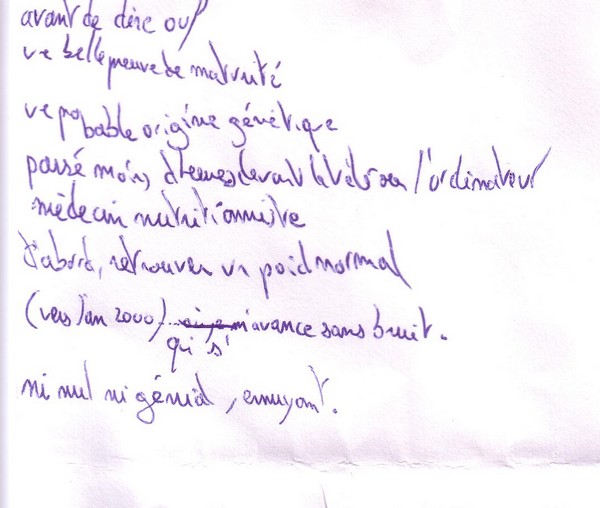 avant de dire ouf
ue belle preuve de maturité
ue pobable origine génétique
passé moins d'heures devant la télé ou l'ordinateur
médecin nutritionniste
d'abord, retrouver un poid normal
(vers l'an 2000) m'avance sans bruit.
qui s'
ni nul ni génial, ennuyant.